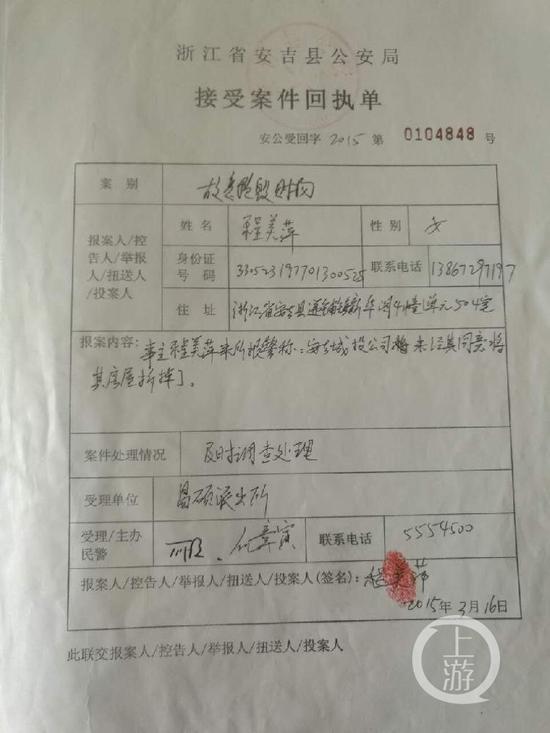 浙江省安吉县公安局
接受案件回执单
安公受回字 2015 第 0104848 号
案 别 故意损毁财物
报案人/控告人/举报人/扭送人/投案人
姓 名 程美萍 性 别 女
身份证号 码 330523197701300525 联系电话 13867297197
住 址 浙江省安吉县递铺镇新华 504室
报案内容：事主程美萍来所报警称：安吉城投公司将未经其同意将
其房屋拆掉了。
案件处理情况 及时调查处理
受理单位 昌硕派出所
受理/主办民警 联系电话 5554500
报案人/控告人/举报人/扭送人/投案人(签名)：程美萍
2015年3月16日
此联交报案人/控告人/举报人/扭送人/投案人
上游